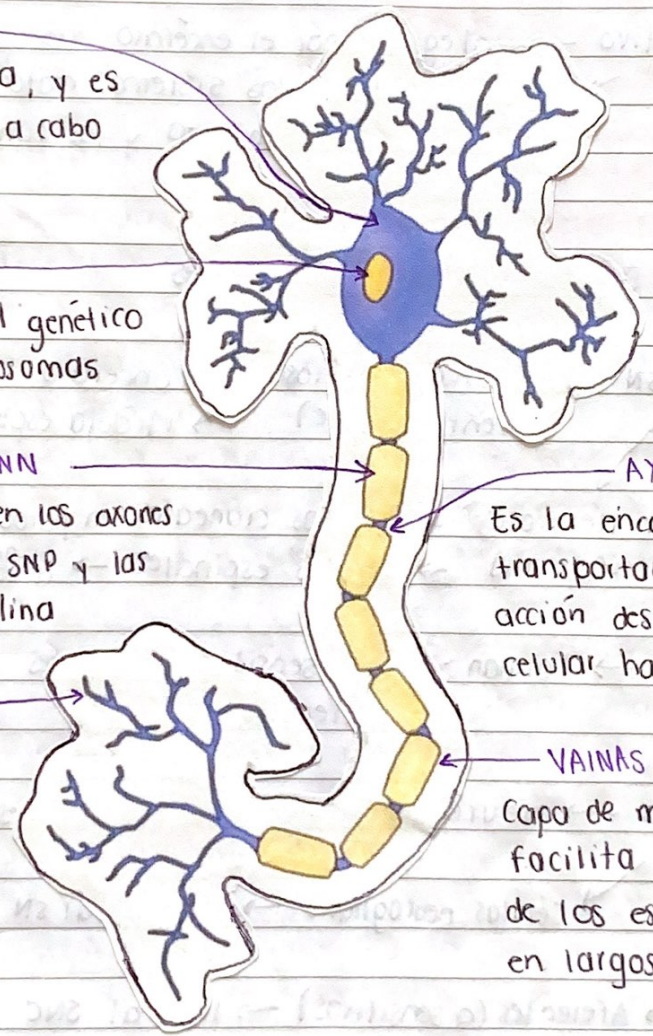 a, y es
a cabo
l genético
osomas
NN
en los axones
SNP y las
lina
AX
Es la enca
transporta
acción des
celular ha
VAINAS
Capa de m
facilita
de los es
en largos